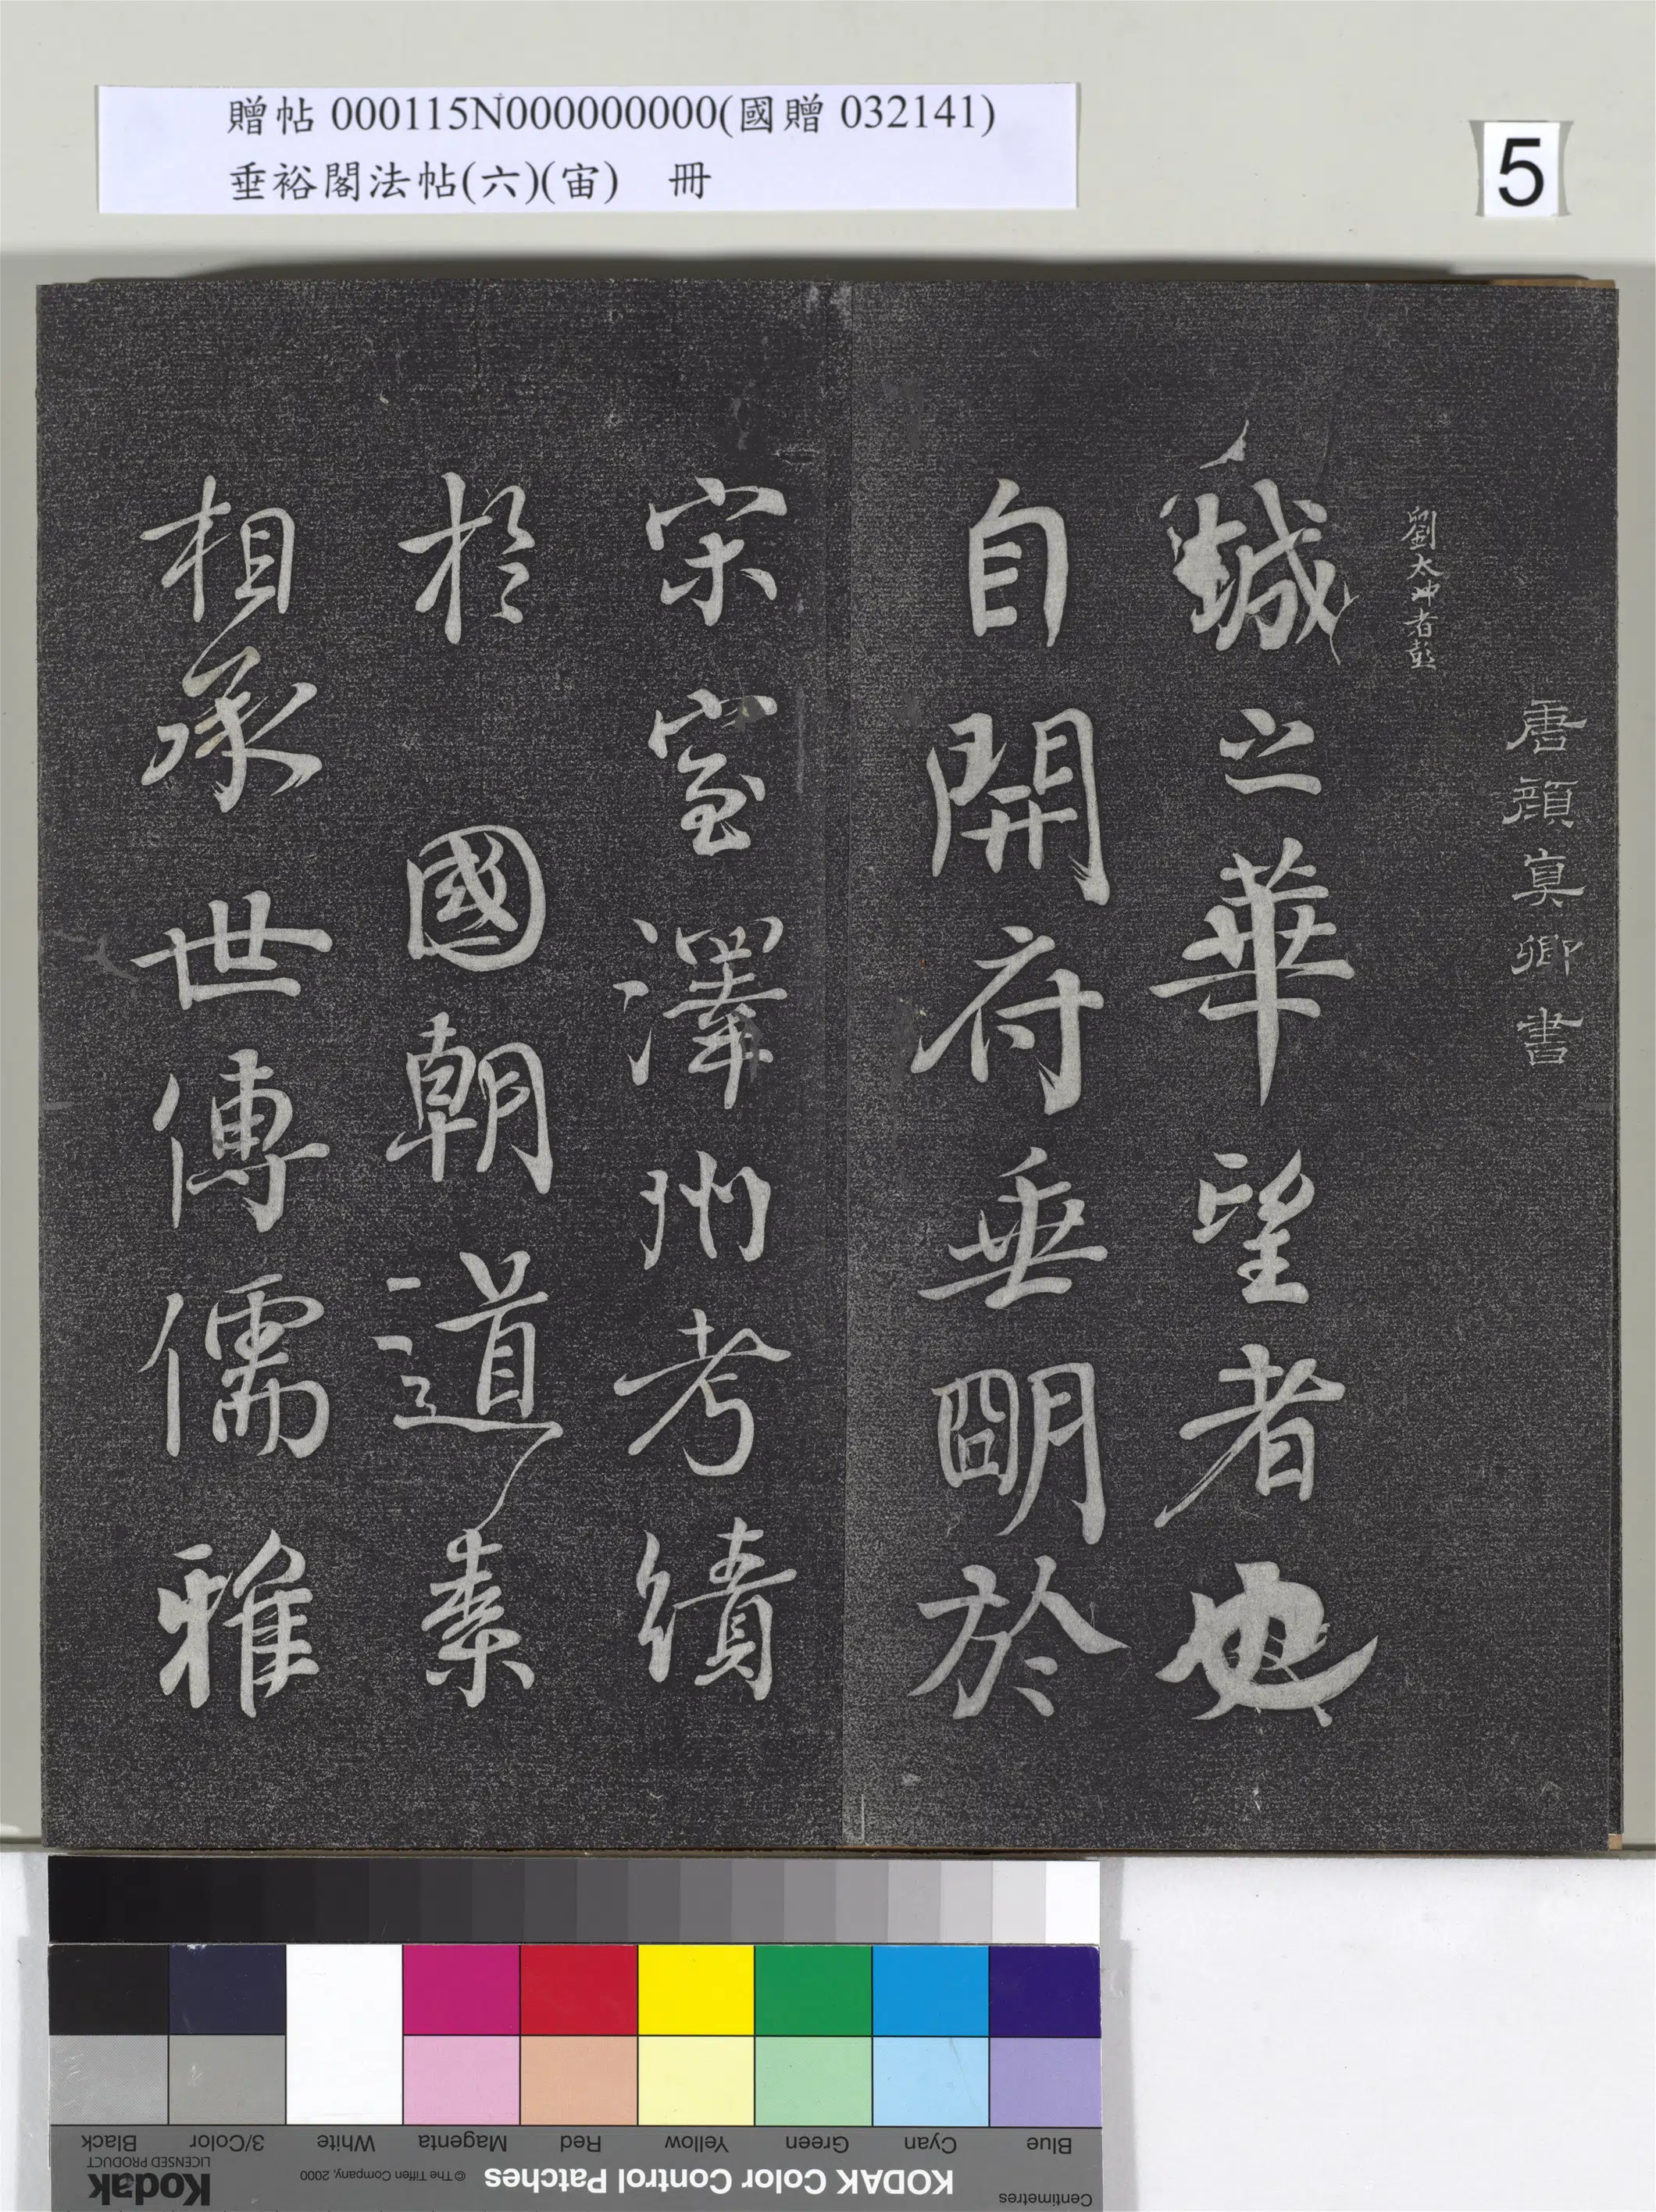 贈帖 000115N000000000(國贈 032141)
垂裕閣法帖(六)(宙) 冊
5
唐顏真卿書
劉太沖者彭
城之華望者也
自開府垂明於
宋室澤州考績
於 國朝道素
相承世傳儒雅
Black
3/Color
White
Magenta
Red
Yellow
Green
Cyan
Blue
Kodak
LICENSED PRODUCT
© The Tiffen Company, 2000
KODAK Color Control Patches
Centimetres